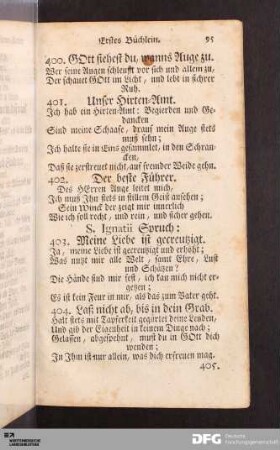 Erstes Büchlein. 95
400. GOtt siehest du, wanns Auge zu.
Wer seine Augen schleust vor sich und allem zu,
Der schauet GOtt im Licht, und lebt in sichrer
Ruh.
401. Unser Hirten-Amt.
Ich hab ein Hirten-Amt: Begierden und Ge-
dancken
Sind meine Schaafe, drauf mein Auge stets
muß sehn;
Ich halte sie in Eins gesammlet, in den Schran-
cken,
Daß sie zerstreuet nicht auf fremder Weide gehn.
402. Der beste Führer.
Des HErren Auge leitet mich,
Ich muß Ihn stets in stillem Geist ansehen;
Sein Winck der zeigt mir innerlich
Wie ich soll recht, und rein, und sicher gehen.
S. Ignatii Spruch:
403. Meine Liebe ist gecreutzigt.
Ja, meine Liebe ist gecreutzigt und erhöht;
Was nutzt mir alle Welt, samt Ehre, Lust
und Schätzen?
Die Hände sind mir fest, ich kan mich nicht er-
getzen;
Es ist kein Feur in mir, als das zum Vater geht.
404. Laß nicht ab, bis in dein Grab.
Halt stets mit Tapferkeit gegürtet deine Lenden,
Und gib der Eigenheit in keinem Dinge nach;
Gelassen, abgesehnt, must du in GOtt dich
wenden;
In Ihm ist nur allein, was dich erfreuen mag.
405.
DFG
Deutsche
Forschungsgemeinschaft